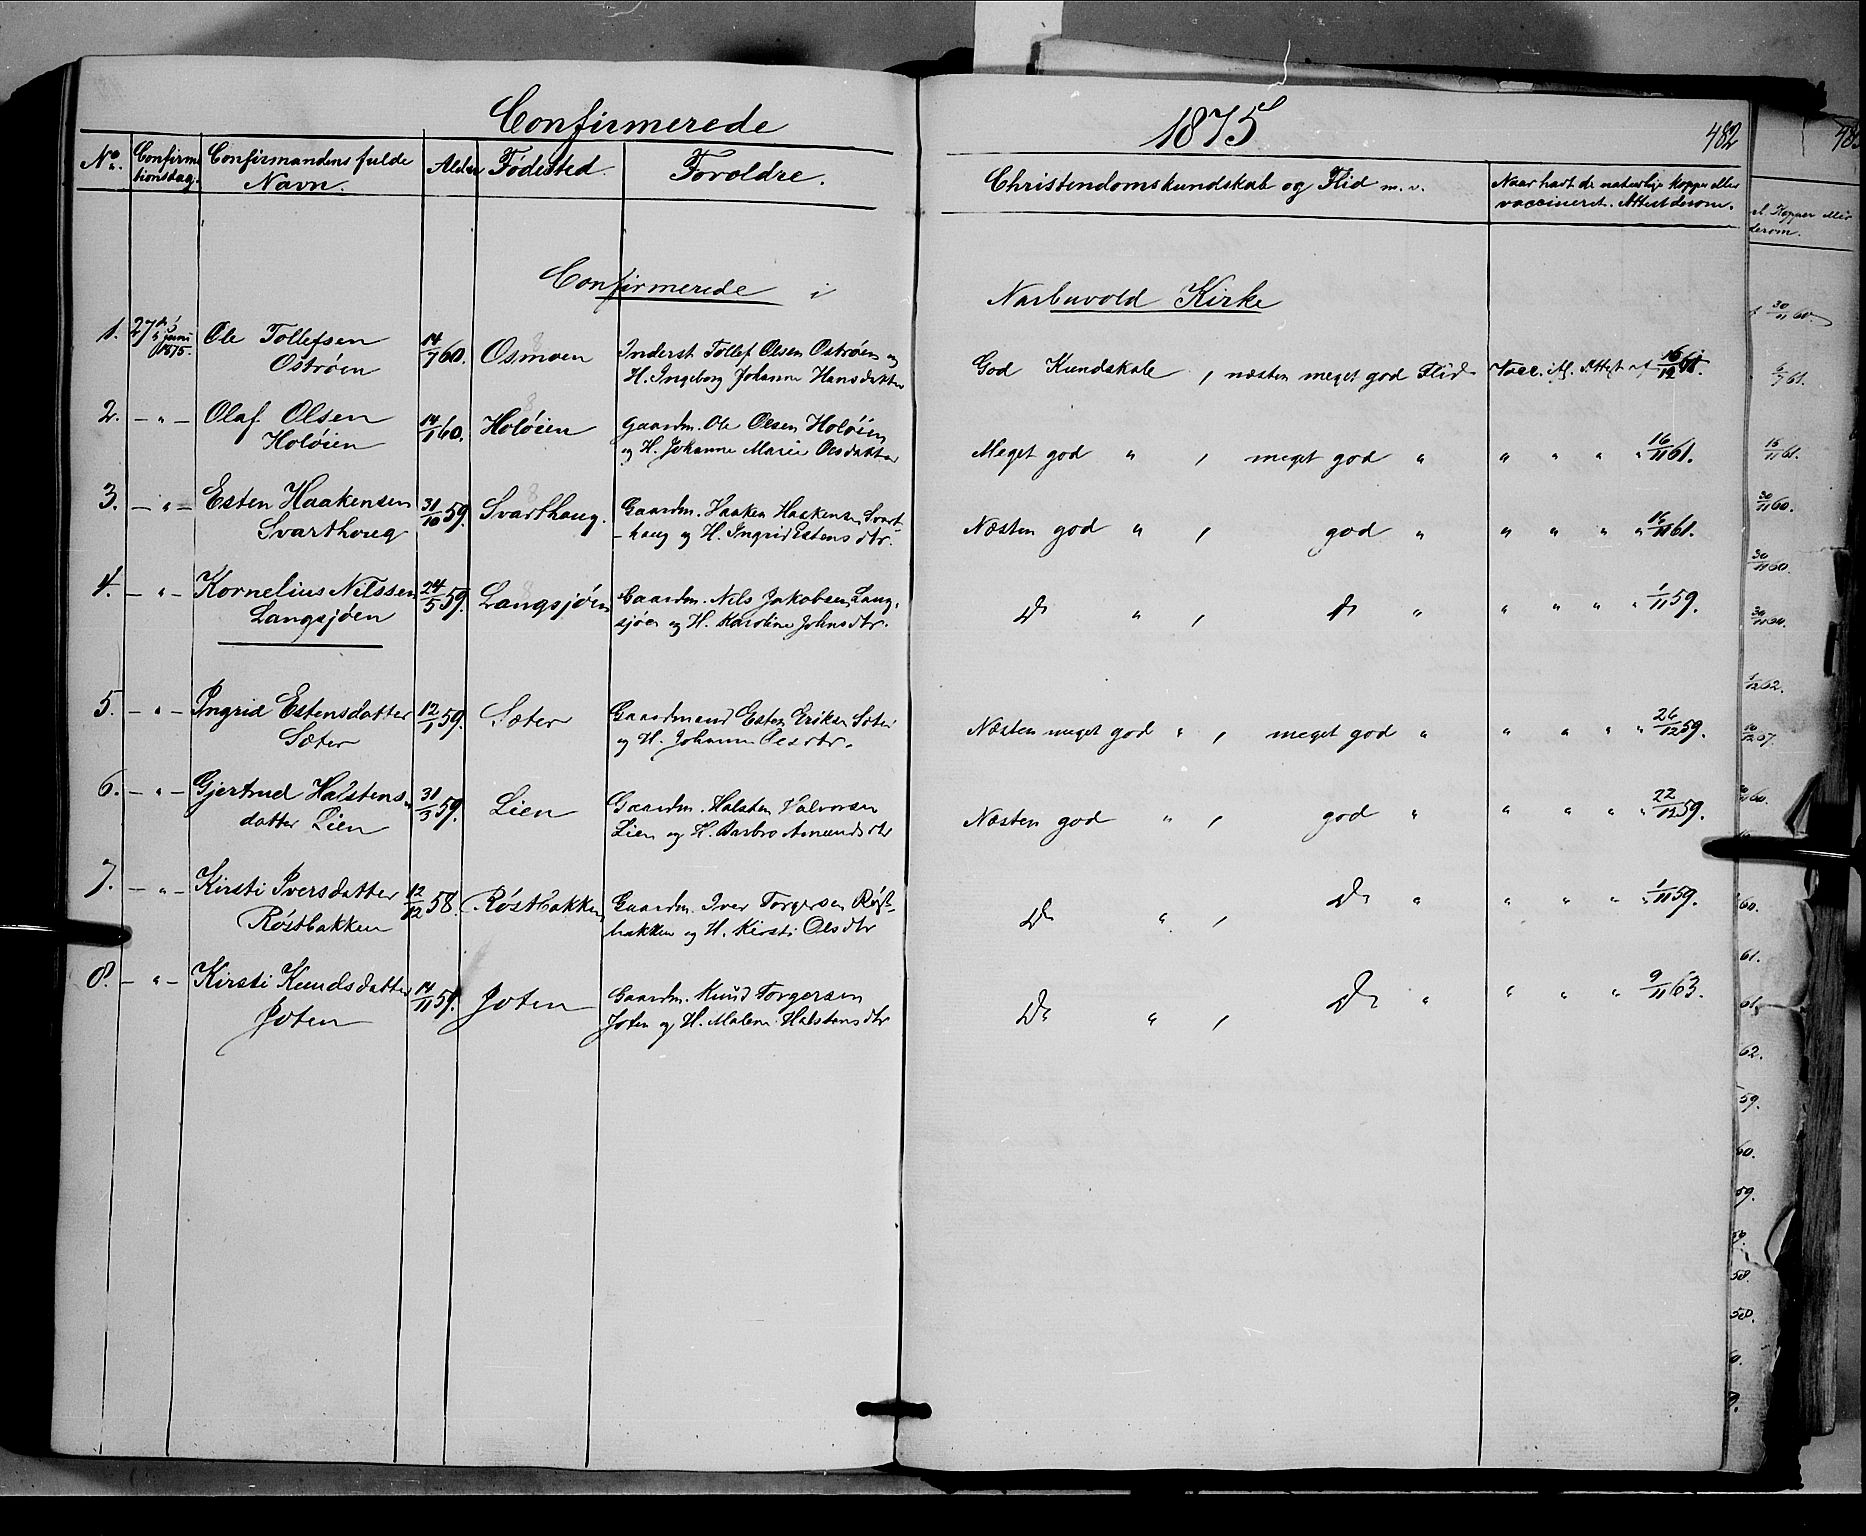 Confirmerede
1875
482
No. Confirmationsdag. Confirmandens fulde Navn. Alder Fødested. Foreldre. Christendomskundskab og Flid m.v. Naar havt de naturlige Kopper eller vaccineret. Attest derom.
Confirmerede i Narbuvold Kirke
1. 27de Juni 1875. Ole Tollefsen Ostrøen 14/7 60. Osmoen Inderst Tollef Olsen Ostrøen og H. Ingeborg Johanne Hansdatter God Kundskab, næsten meget god Flid Vacc. if. Attest af 16/12 61.
2. – " – Olaf Olsen Holøien 14/1 60. Holøien Gaardm. Ole Olsen Holøien og H. Johanne Marie Olsdatter Meget god " , meget god " " " " " 16/11 61.
3. – " – Esten Haakensen Svarthoug 31/10 59. Svarthaug. Gaardm. Haaken Haakensen Svart-haug og H. Ingrid Estensdtr. Næsten god " , god " " " " " 16/11 61.
4. – " – Kornelius Nilssen Langsjøen 24/5 59. Langsjøen Gaardm. Nils Jakobsen Langsjøen og H. Karoline Johnsdtr. Do " , Do " " " " " 1/11 59.
5. – " – Ingrid Estensdatter Sæter 12/1 59. Sæter Gaardmand Esten Eriksen Sæter og H. Johanne Olesdtr. Næsten meget god " , meget god " " " " " 26/12 59.
6. – " – Gjertrud Halstensdatter Lien 31/3 59. Lien Gaardm. Halsten Halvorsen Lien og H. Barbro Amundsdtr Næsten god " , god " " " " " 22/12 59.
7. – " – Kirsti Iversdatter Røstbakken 12/12 58. Røstbakken Gaardm. Iver Torgersen Røst-bakken og H. Kirsti Olsdtr Do " , Do " " " " " 1/11 59.
8. – " – Kirsti Knudsdatter Joten 14/11 59. Joten Gaardm. Knud Torgersen Joten og H. Malene Halstensdtr Do " , Do " " " " 9/11 63.